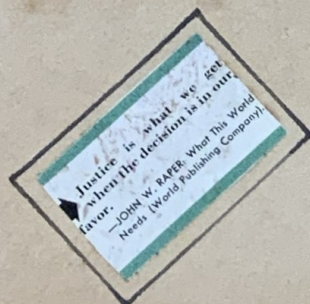 Justice is what we get
when the decision is in our
favor.
—JOHN W. RAPER, What This World
Needs (World Publishing Company).